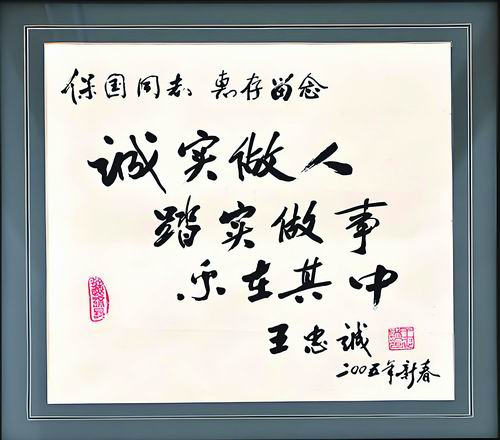 保国同志 惠存留念
诚实做人
踏实做事
乐在其中
王忠诚
二00五年新春